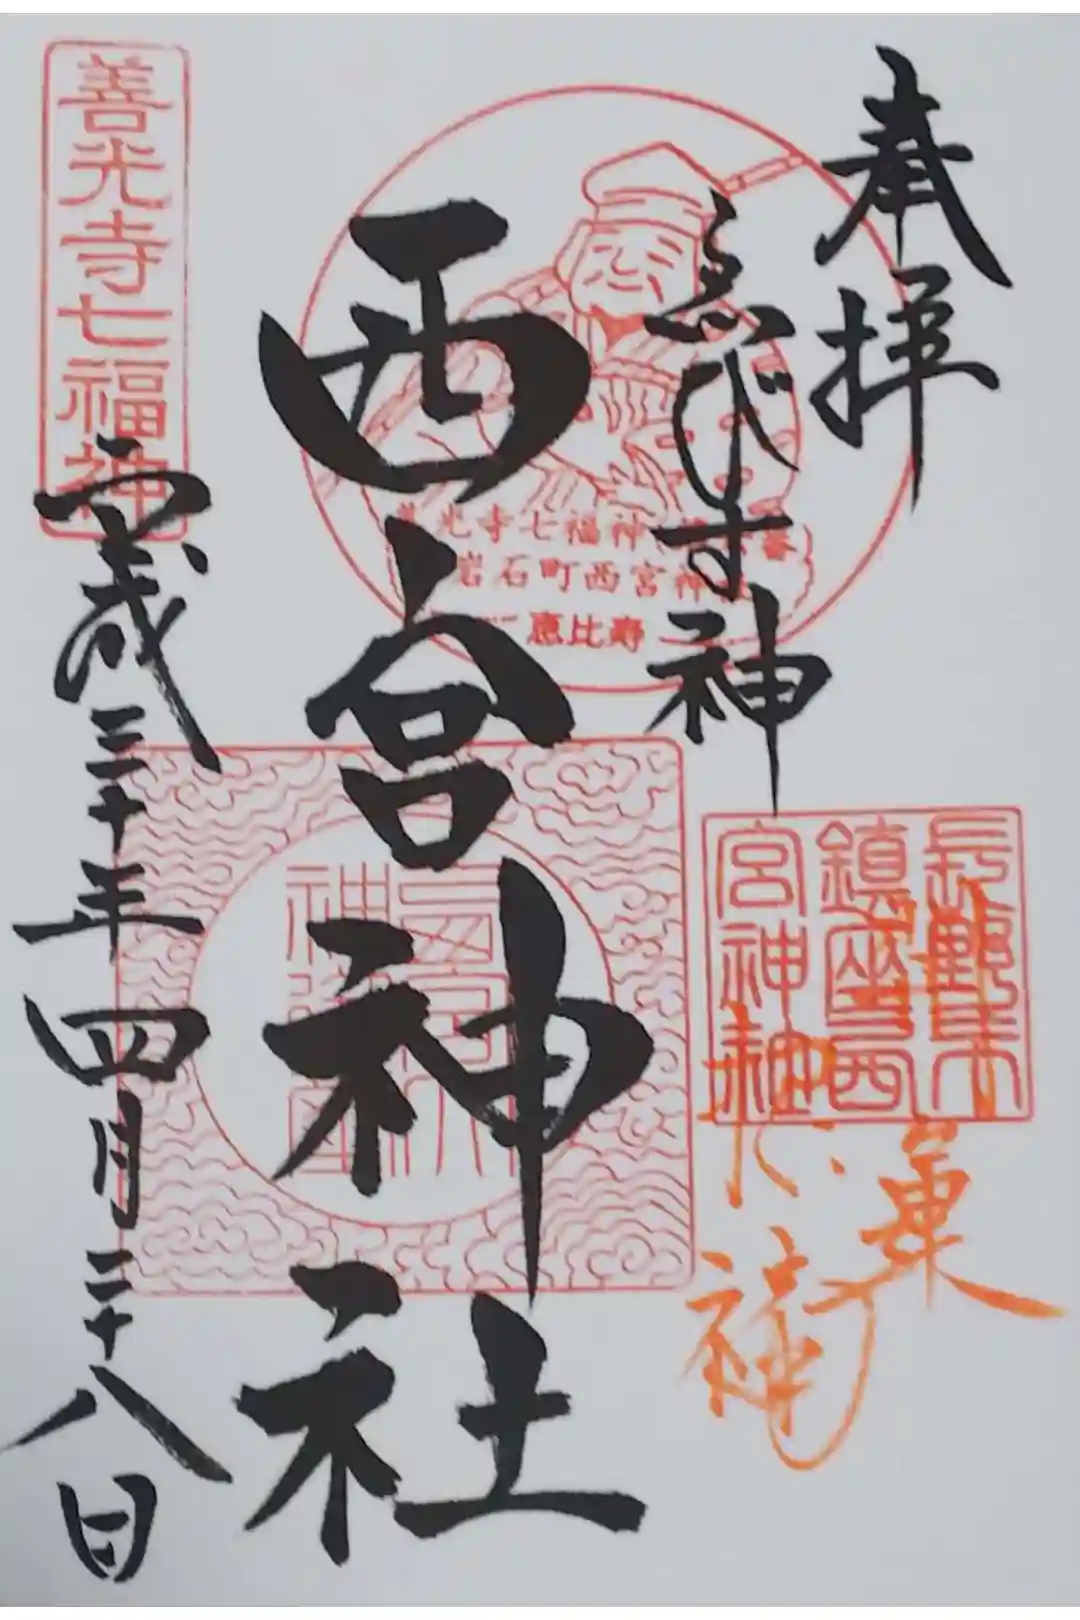 奉拝
ゑびす神
西宮神社
善光寺七福神
岩石町西宮神社
恵比寿
長野市
鎮座西
宮神社
善光寺七福神
三十年四月二十八日